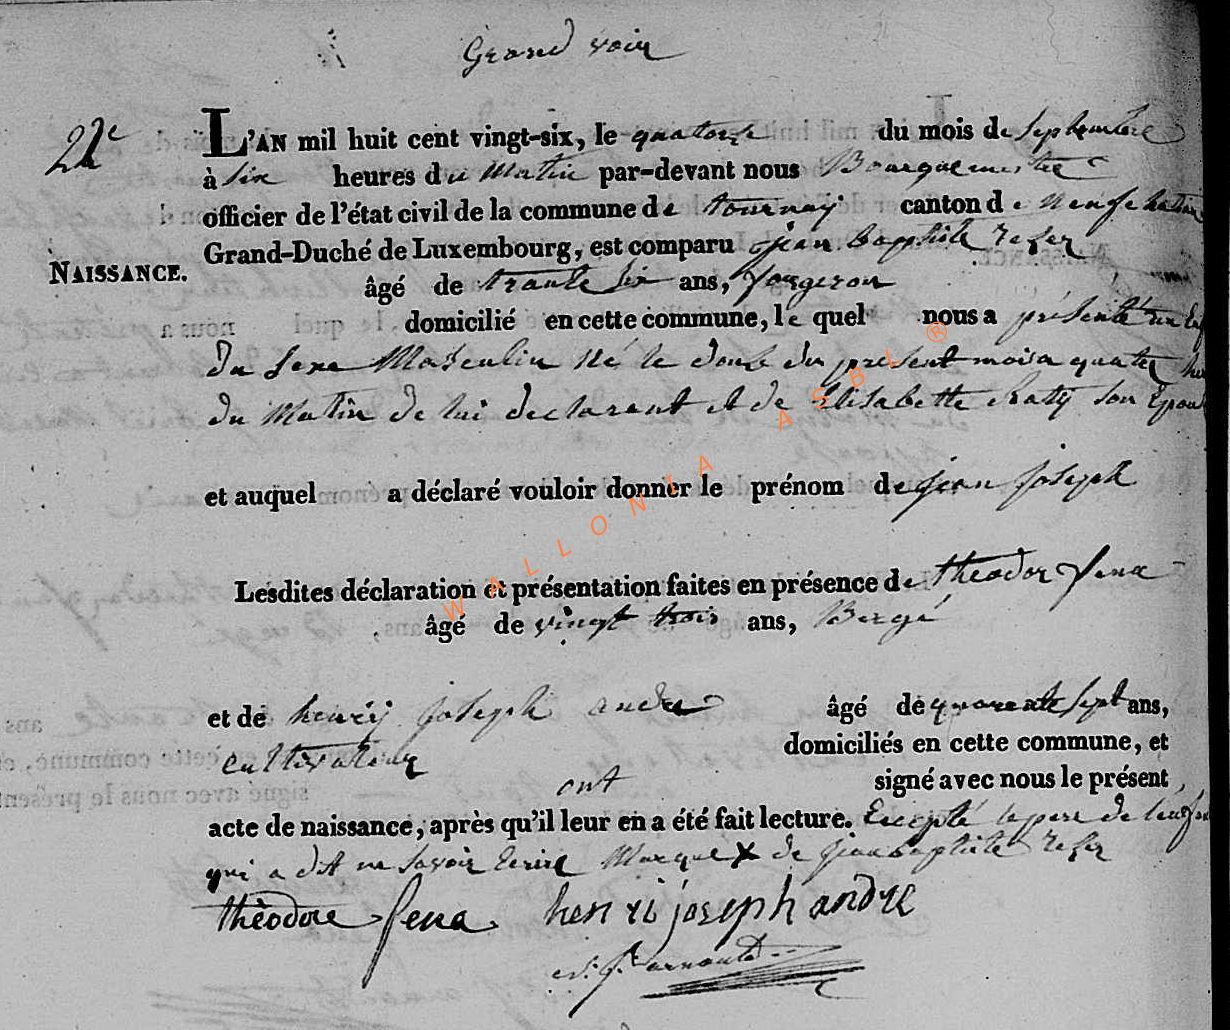 Grand voir
22e
L'AN mil huit cent vingt-six, le quatorze du mois de Septembre
à Six heures du Matin par-devant nous Bourguemestre
officier de l'état civil de la commune de tournay canton de Neufchateau
Grand-Duché de Luxembourg, est comparu jean baptiste
NAISSANCE.
âgé de trante Six ans, forgeron
domicilié en cette commune, le quel nous a présenté un Enf
du Sexe Masculin Né le douse du present mois a quatre he
du Matin de lui declarant et de Elisabette son Epous
et auquel a déclaré vouloir donner le prénom de jean joseph
Lesdites déclaration et présentation faites en présence de theodor
âgé de vingt trois ans, Bergé
et de henry joseph andre âgé de quarente sept ans,
cultivateur domiciliés en cette commune, et
ont signé avec nous le présent
acte de naissance, après qu'il leur en a été fait lecture. Excepté le pere de lenfan
qui a dit ne savoir Ecrire Marque X de jean baptiste
thèodore henri joseph andre
WALLONIA ASBL ®